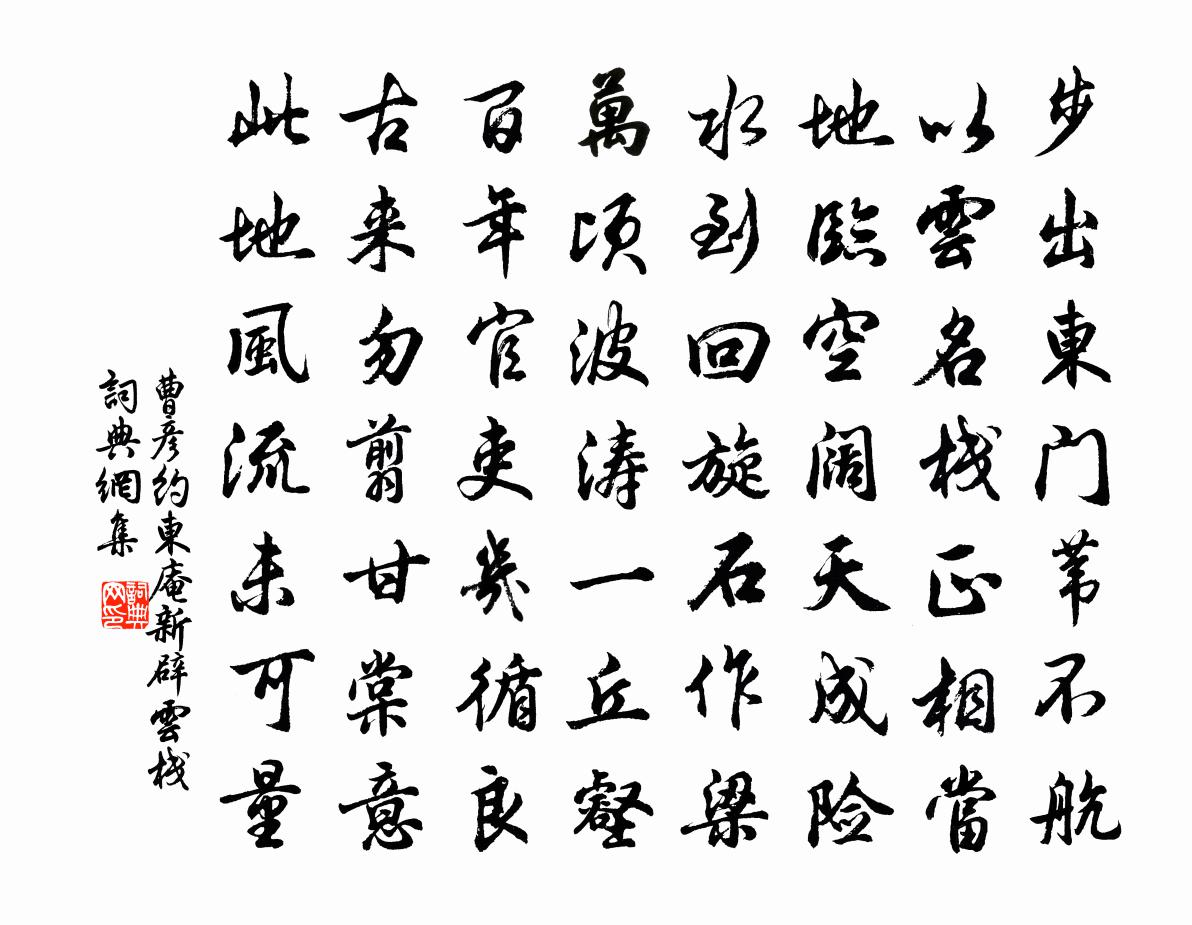 步出東门苇不航
以雲名栈正相當
地臨空阔天成险
水到回旋石作梁
萬顷波涛一丘壑
百年官吏幾循良
古来勿剪甘棠意
此地風流未可量
曹彦约東庵新辟雲栈
詞典網集
詞典
网印